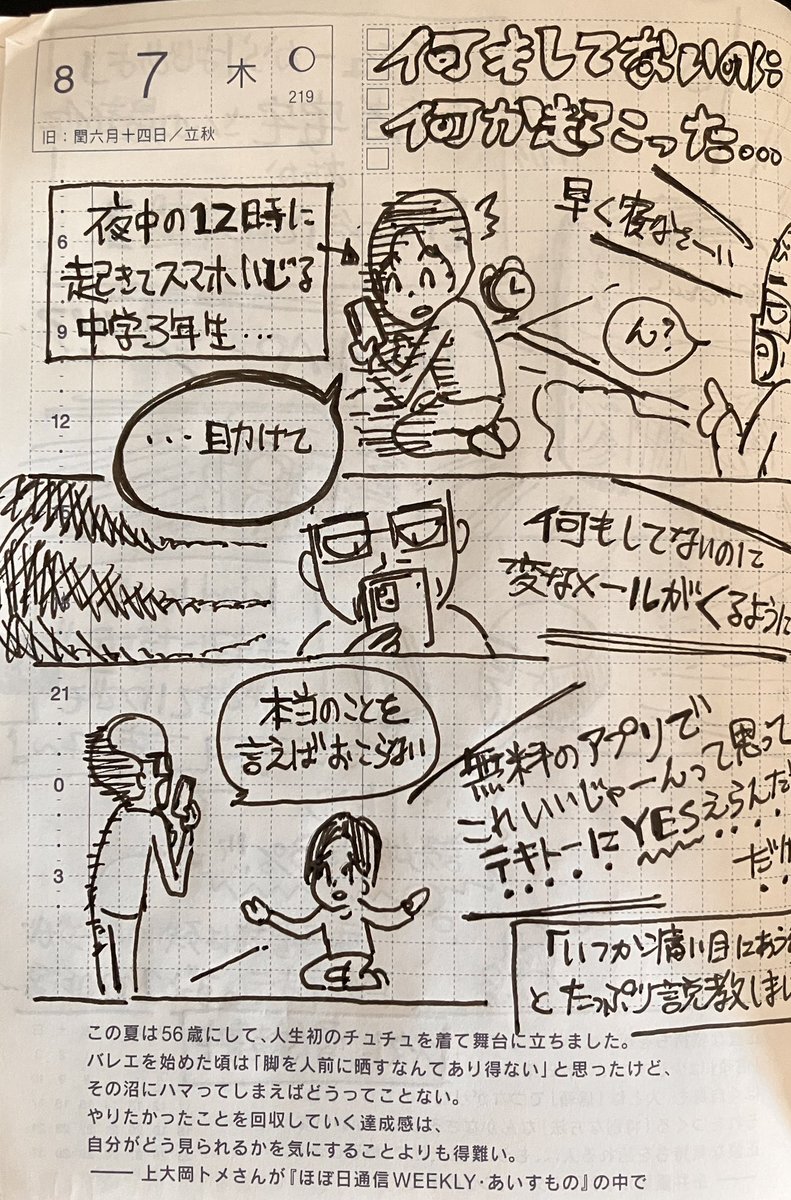 8 7 木
219
旧：閏六月十四日／立秋
何もしてないのに
何か起こった…
夜中の12時に
起きてスマホいじる
中学3年生…
早く寝なさーい
ん？
…助けて
何もしてないのに
変なメールがくるように
本当のことを
言えばおこらない
無料のアプリで
これいいじゃーんって思って
テキトーにYESえらんだ
だけ
「いつか痛い目にあう
とたっぷり説教しまし
6
9
12
21
0
3
この夏は56歳にして、人生初のチュチュを着て舞台に立ちました。
バレエを始めた頃は「脚を人前に晒すなんてあり得ない」と思ったけど、
その沼にハマってしまえばどうってことない。
やりたかったことを回収していく達成感は、
自分がどう見られるかを気にすることよりも得難い。
―― 上大岡トメさんが『ほぼ日通信WEEKLY・あいすもの』の中で